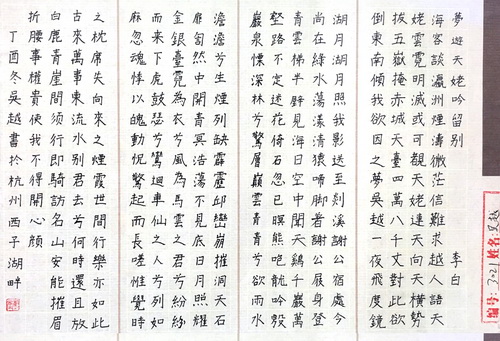 夢遊天姥吟留别 李白
海客談瀛洲煙濤微茫信難求越人語天
姥雲霓明滅或可觀天姥連天向天橫勢
拔五嶽掩赤城天臺四萬八千丈對此欲
倒東南傾我欲因之夢吳越一夜飛度鏡
湖月湖月照我影送至剡溪謝公宿處今
尚在綠水蕩漾清猿啼脚著謝公屐身登
青雲梯半壁見海日空中聞天鷄千巖萬
壑路不定迷花倚石忽已暝熊咆龍吟殷
巖泉慄深林兮驚層巔雲青青兮欲雨水
澹澹兮生煙列缺霹靂邱巒崩摧洞天石
扉訇然中開青冥浩蕩不見底日月照耀
金銀臺霓為衣兮風為馬雲之君兮紛紛
而來下虎鼓瑟兮鸞迴車仙之人兮列如
麻忽魂悸以魄動怳驚起而長嗟惟覺時
之枕席失向來之煙霞世間行樂亦如此
古來萬事東流水别君去兮何時還且放
白鹿青崖間須行即騎訪名山安能摧眉
折腰事權貴使我不得開心顏
丁酉冬吳越書於杭州西子湖畔
编号: 3021 姓名: 吴越